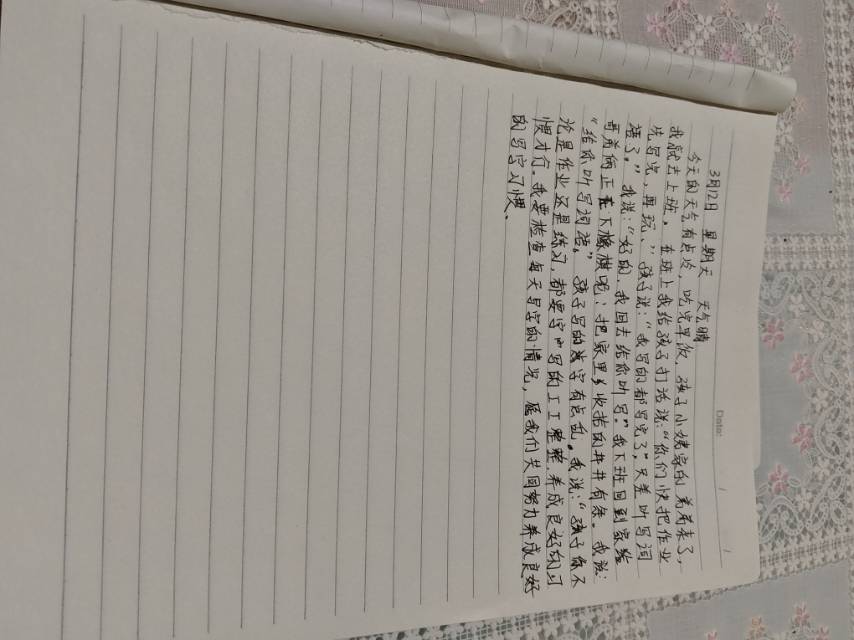 Date:
3月12日 星期天 天气晴
今天的天气有点冷，吃完早饭，孩子小姨家的哥哥来了，
我就去上班。在班上我给孩子打话说：“你们快把作业
先写完，再玩、”孩子说：“我写的都写完了”只差听写词
语了。”我说：“好的，我回去给你听写”我下班回到家给
哥弟俩正在下橡棋呢；把家里收拾的井井有条。我说：
“给你听写词语”孩子写的字有点乱。我说：“孩子你不
论是作业还是练习，都要字写的工工整整，养成良好的习
惯才行。我要检查每天写字的情况，愿我们共同努力养成良好
的写字习惯。